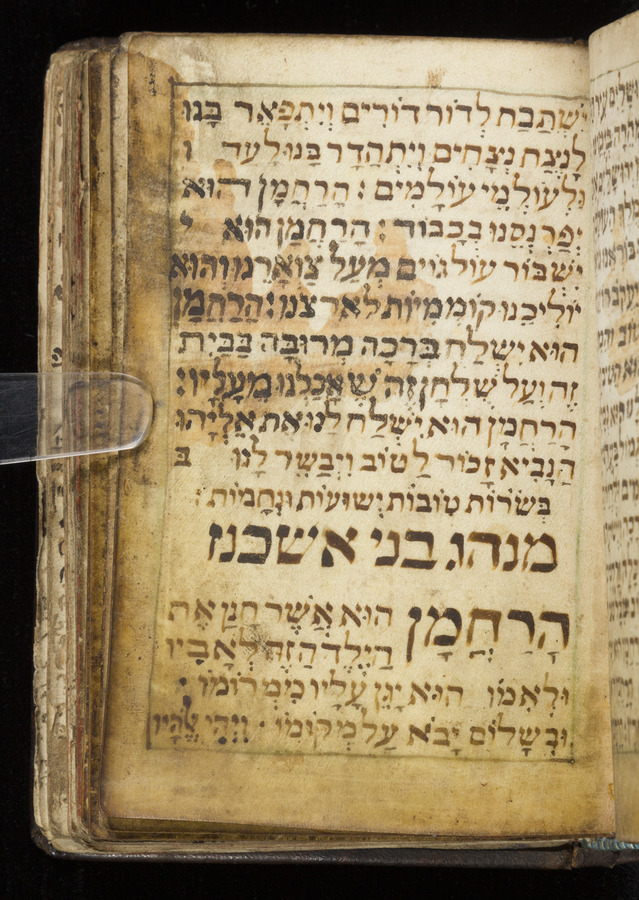 יִשְׁתַּבַּח לְדוֹר דּוֹרִים וְיִתְפָּאֵר בָּנוּ
לָנֶצַח נְצָחִים וְיִתְהַדָּר בָּנוּ לָעַד ו
וּלְעוֹלְמֵי עוֹלָמִים: הָרַחֲמָן הוּא
יְפַרְנְסֵנוּ בְּכָבוֹד: הָרַחֲמָן הוּא י
יִשְׁבּוֹר עוֹל גּוֹיִם מֵעַל צַוָּארֵנוּ וְהוּא
יוֹלִיכֵנוּ קוֹמְמִיּוּת לְאַרְצֵנוּ: הָרַחֲמָן
הוּא יִשְׁלַח בְּרָכָה מְרוּבָּה בְּבַיִת
זֶה וְעַל שֻׁלְחָן זֶה שֶׁאָכַלְנוּ מֵעָלָיו:
הָרַחֲמָן הוּא יִשְׁלַח לָנוּ אֶת אֵלִיָּהוּ
הַנָּבִיא זָכוּר לַטּוֹב וִיבַשֶּׂר לָנוּ ב
בְּשׂרוֹת טוֹבוֹת יְשׁוּעוֹת וְנֶחָמוֹת:
מנהג בני אשכנז
הָרַחֲמָן הוּא אֲשֶׁר חָנַן אֶת
הַיֶּלֶד הַזֶּה לְאָבִיו
וּלְאִמּוֹ הוּא יָגֵן עָלָיו מִמְּרוֹמוֹ:
וּבְשָׁלוֹם יָבֹא עַל מְקוֹמוֹ: וִיהִי אֱלֹהָיו